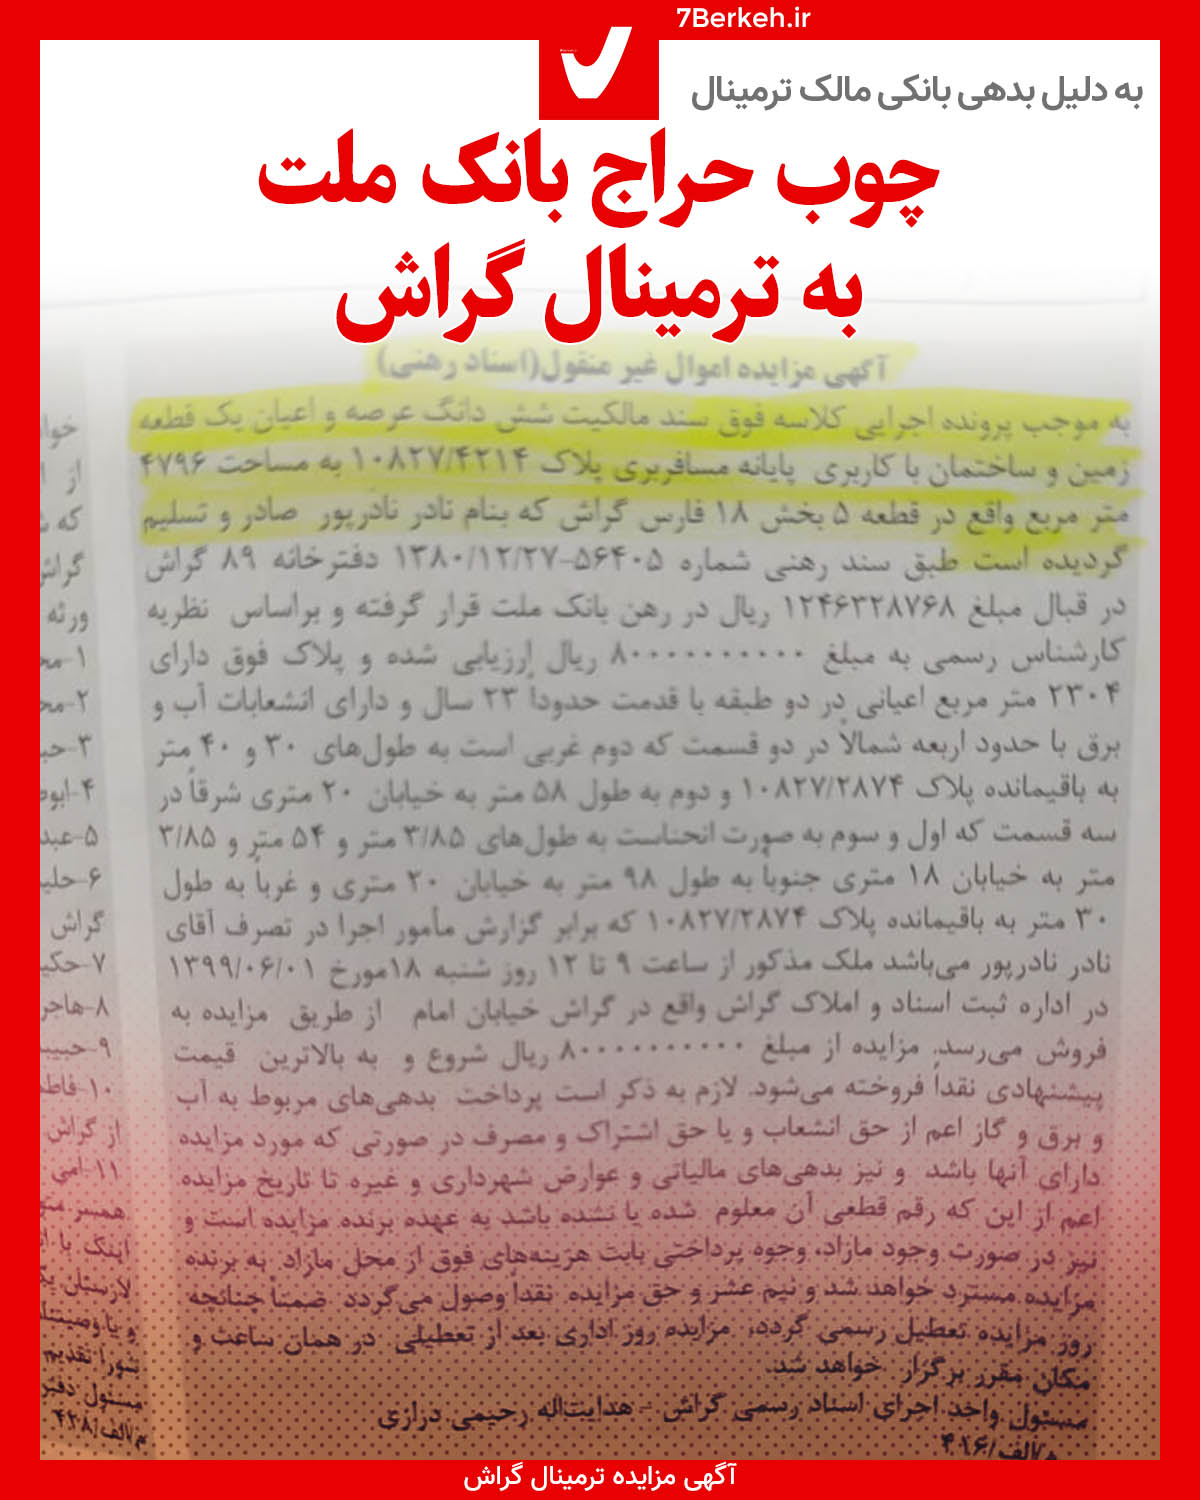 7Berkeh.ir
به دلیل بدهی بانکی مالک ترمینال
چوب حراج بانک ملت
به ترمینال گراش
آگهی مزایده اموال غیر منقول(اسناد رهنی)
به موجب پرونده اجرایی کلاسه فوق سند مالکیت شش دانگ عرصه و اعیان یک قطعه
زمین و ساختمان با کاربری پایانه مسافربری پلاک ۱۰۸۲۷/۴۲۱۴ به مساحت ۴۷۹۶
متر مربع واقع در قطعه ۵ بخش ۱۸ فارس گراش که بنام نادر نادرپور صادر و تسلیم
گردیده است طبق سند رهنی شماره ۵۶۴۰۵-۱۳۸۰/۱۲/۲۷ دفترخانه ۸۹ گراش
در قبال مبلغ ۱۲۴۶۳۲۸۷۶۸ ریال در رهن بانک ملت قرار گرفته و براساس نظریه
کارشناس رسمی به مبلغ ۸۰۰۰۰۰۰۰۰۰۰ ریال ارزیابی شده و پلاک فوق دارای
۲۳۰۴ متر مربع اعیانی در دو طبقه با قدمت حدوداً ۲۳ سال و دارای انشعابات آب و
برق با حدود اربعه شمالاً در دو قسمت که دوم غربی است به طول‌های ۳۰ و ۴۰ متر
به باقیمانده پلاک ۱۰۸۲۷/۲۸۷۴ و دوم به طول ۵۸ متر به خیابان ۲۰ متری شرقاً در
سه قسمت که اول و سوم به صورت انحناست به طول‌های ۳/۸۵ متر و ۵۴ متر و ۳/۸۵
متر به خیابان ۱۸ متری جنوباً به طول ۹۸ متر به خیابان ۲۰ متری و غرباً به طول
۳۰ متر به باقیمانده پلاک ۱۰۸۲۷/۲۸۷۴ که برابر گزارش مأمور اجرا در تصرف آقای
نادر نادرپور می‌باشد ملک مذکور از ساعت ۹ تا ۱۲ روز شنبه ۱۸مورخ ۱۳۹۹/۰۶/۰۱
در اداره ثبت اسناد و املاک گراش واقع در گراش خیابان امام از طریق مزایده به
فروش می‌رسد. مزایده از مبلغ ۸۰۰۰۰۰۰۰۰۰۰ ریال شروع و به بالاترین قیمت
پیشنهادی نقداً فروخته می‌شود. لازم به ذکر است پرداخت بدهی‌های مربوط به آب
و برق و گاز اعم از حق انشعاب و یا حق اشتراک و مصرف در صورتی که مورد مزایده
دارای آنها باشد و نیز بدهی‌های مالیاتی و عوارض شهرداری و غیره تا تاریخ مزایده
اعم از این که رقم قطعی آن معلوم شده یا نشده باشد به عهده برنده مزایده است و
نیز در صورت وجود مازاد، وجوه پرداختی بابت هزینه‌های فوق از محل مازاد به برنده
مزایده مسترد خواهد شد و نیم عشر و حق مزایده نقداً وصول می‌گردد ضمناً چنانچه
روز مزایده تعطیل رسمی گردد، مزایده روز اداری بعد از تعطیلی در همان ساعت و
مکان مقرر برگزار خواهد شد.
مسئول واحد اجرای اسناد رسمی گراش - هدایت‌اله رحیمی درازی
م/الف/۴۱۶
از
گراش
ورثه
گراش
از گراش
۱۱-امی
همسر
اینک با
لارستان
شورا تقدیم
مسئول دفتر
م/الف/۴۲۸
آگهی مزایده ترمینال گراش